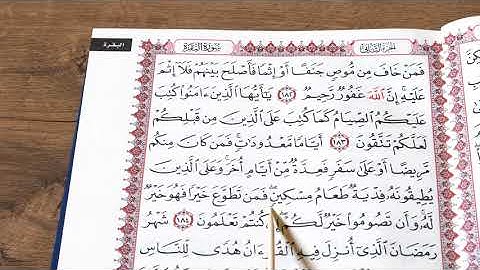 البقرة
سورة البقرة
الجزء الثاني
فَمَنْ خَافَ مِن مُّوصٍ جَنَفًا أَوْ إِثْمًا فَأَصْلَحَ بَيْنَهُمْ فَلَا إِثْمَ
عَلَيْهِ إِنَّ اللَّهَ غَفُورٌ رَّحِيمٌ ١٨٢ يَا أَيُّهَا الَّذِينَ ءَامَنُوا كُتِبَ
عَلَيْكُمُ الصِّيَامُ كَمَا كُتِبَ عَلَى الَّذِينَ مِن قَبْلِكُمْ
لَعَلَّكُمْ تَتَّقُونَ ١٨٣ أَيَّامًا مَّعْدُودَاتٍ فَمَن كَانَ مِنكُم
مَّرِيضًا أَوْ عَلَى سَفَرٍ فَعِدَّةٌ مِّنْ أَيَّامٍ أُخَرَ وَعَلَى الَّذِينَ
يُطِيقُونَهُ فِدْيَةٌ طَعَامُ مِسْكِينٍ فَمَن تَطَوَّعَ خَيْرًا فَهُوَ خَيْرٌ
لَّهُ وَأَن تَصُومُوا خَيْرٌ لَّكُمْ كُنتُمْ تَعْلَمُونَ ١٨٤ شَهْرُ
رَمَضَانَ الَّذِي أُنزِلَ فِيهِ الْقُرْءَانُ هُدًى لِّلنَّاسِ